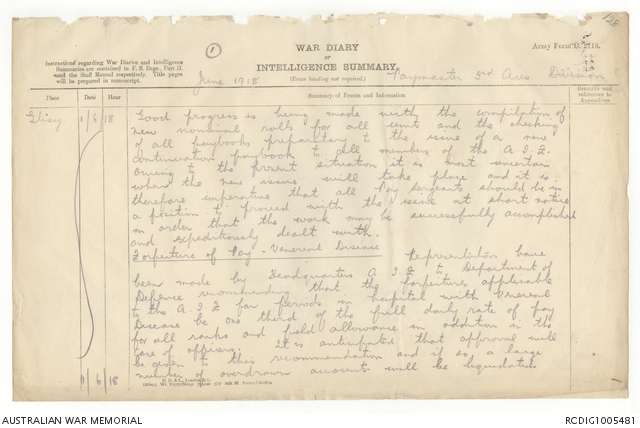 1
WAR DIARY
or
INTELLIGENCE SUMMARY.
(Erase heading not required.)
Army Form C. 2118.
Instructions regarding War Diaries and Intelligence
Summaries are contained in F. S. Regs., Part II.
and the Staff Manual respectively. Title pages
will be prepared in manuscript.
June 1918
Paymaster 3rd Aus Division
Place
Date
Hour
Summary of Events and Information
Remarks and
references to
Appendices
Glisy 1/6/18
Good progress is being made with the compilation of
new nominal rolls for all units and the checking
of all paybooks preparatory to the issue of a new
continuation paybook to all members of the A.I.F.
Owing to the present situation it is most uncertain
when the new issue will take place and it is
therefore imperative that all Pay Sergeants should be in
a position to proceed with the issue at short notice
in order that the work may be successfully accomplished
and expeditiously dealt with.
Forfeiture of Pay - Venereal Disease
Representation have
been made by Headquarters A.I.F. to Department of
Defence recommending that the forfeitures applicable
to the A.I.F. for periods in hospital with Venereal
Disease be one third of the full daily rate of pay
for all ranks and field allowance in addition in the
case of officers. It is anticipated that approval will
be given to this recommendation and if so a large
number of overdrawn accounts will be liquidated.
/6/18
AUSTRALIAN WAR MEMORIAL
RCDIG1005481